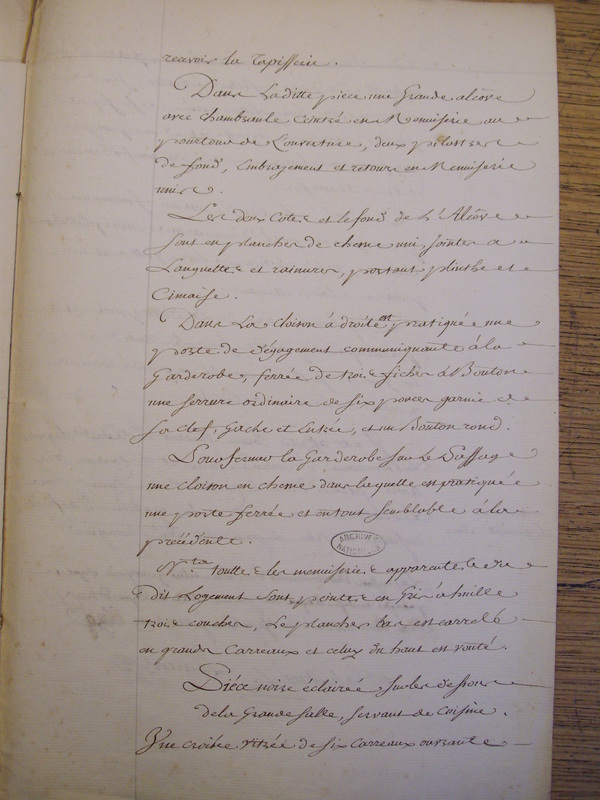 recevoir la Tapisserie.
Dans Laditte piece une Grande alcove
avec chambranle ceintré en Menuiserie au
pourtour de L'ouverture, deux pilastres
de fond, Embrazement et retour en Menuiserie
unie.
Les deux Cotés et le fond de l'Alcove
sont en planches de chene uni, jointes a
Languettes et rainures, portant plinthe et
Cimaise.
Dans La cloison à droite est pratiquée une
porte de dégagement communiquante à la
Garderobe, ferrée de trois fiches à Bouton
une serrure ordinaire de six pouces garnie de
sa clef, Gache et Entrée, et un Bouton rond.
Pour fermer la Garderobe sur Le Passage
une cloison en chene dans laquelle est pratiquée
une porte ferrée et en tout semblable à la
précédente.
ARCHIVES NATIONALES
N.ta toutte les menuiserie apparente du
dit Logement sont peintes en Gris à huille
trois couches, Le plancher bas est carrelé
en grands Carreaux et celuy du haut est vouté.
Piéce noire éclairée sur les
de la Grande Salle, servant de Cuisine.
Une croisée vitrée de six Carreaux ouvrante